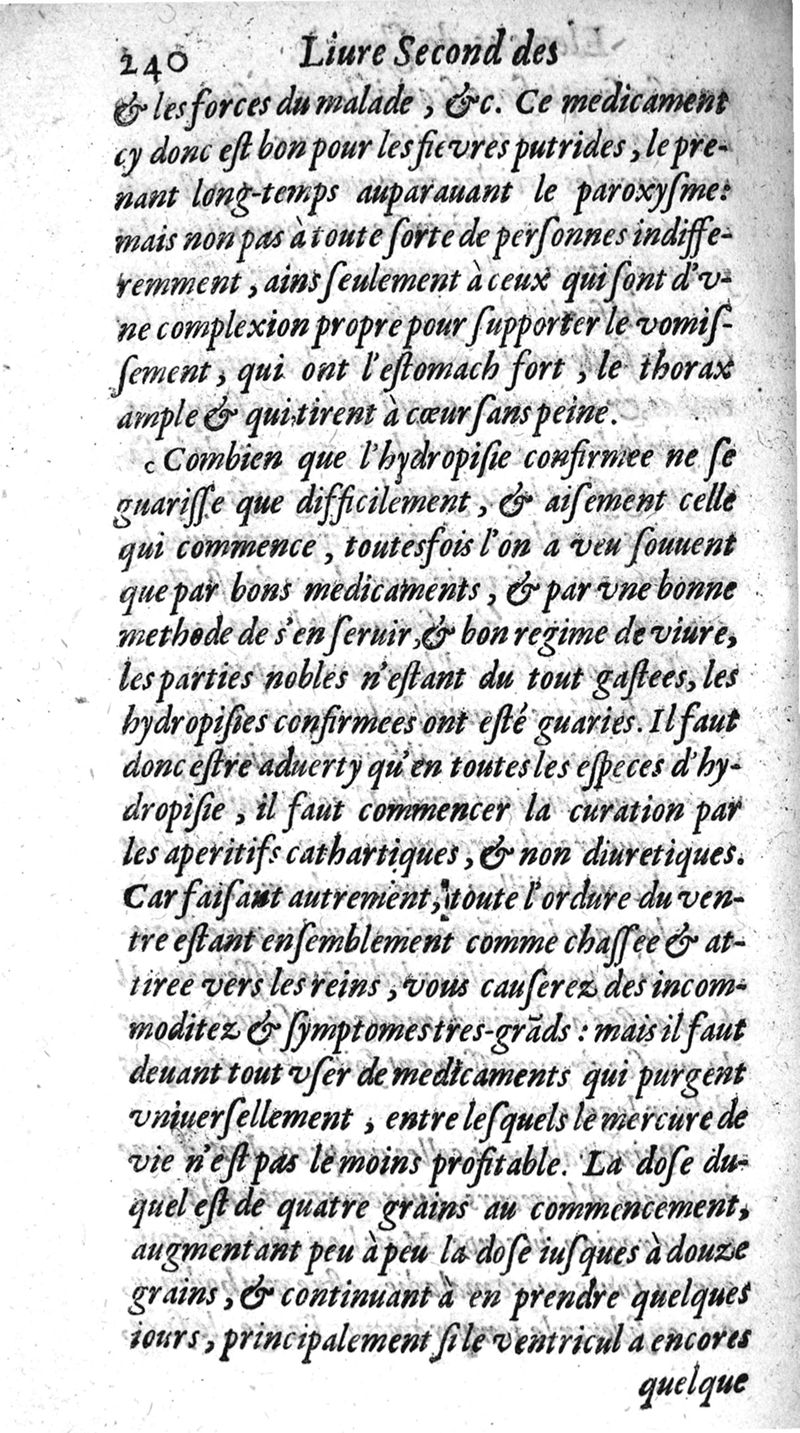 240 Liure Second des
& les forces du malade , &c. Ce medicament
cy donc eſt bon pour les fievres putrides , le pre-
nant long-temps auparauant le paroxyſme:
mais non pas à toute ſorte de perſonnes indiffe-
remment , ains ſeulement à ceux qui ſont d'v-
ne complexion propre pour ſupporter le vomiſ-
ſement , qui ont l'eſtomach fort , le thorax
ample & qui tirent à cœur ſans peine.
c Combien que l'hydropiſie confirmee ne ſe
guariſſe que difficilement , & aiſement celle
qui commence , toutesfois l'on a veu ſouuent
que par bons medicaments , & par vne bonne
methode de s'en ſeruir, & bon regime de viure,
les parties nobles n'eſtant du tout gaſtees, les
hydropiſies confirmees ont eſté guaries. Il faut
donc eſtre aduerty qu'en toutes les eſpeces d'hy-
dropiſie , il faut commencer la curation par
les aperitifs cathartiques , & non diuretiques.
Car faiſant autrement, toute l'ordure du ven-
tre eſtant enſemblement comme chaſſee & at-
tiree vers les reins , vous cauſerez des incom-
moditez & ſymptomes tres-grāds : mais il faut
deuant tout vſer de medicaments qui purgent
vniuerſellement , entre leſquels le mercure de
vie n'eſt pas le moins profitable. La doſe du-
quel eſt de quatre grains au commencement,
augmentant peu à peu la doſe iuſques à douze
grains , & continuant à en prendre quelques
iours , principalement ſi le ventricul a encores
quelque